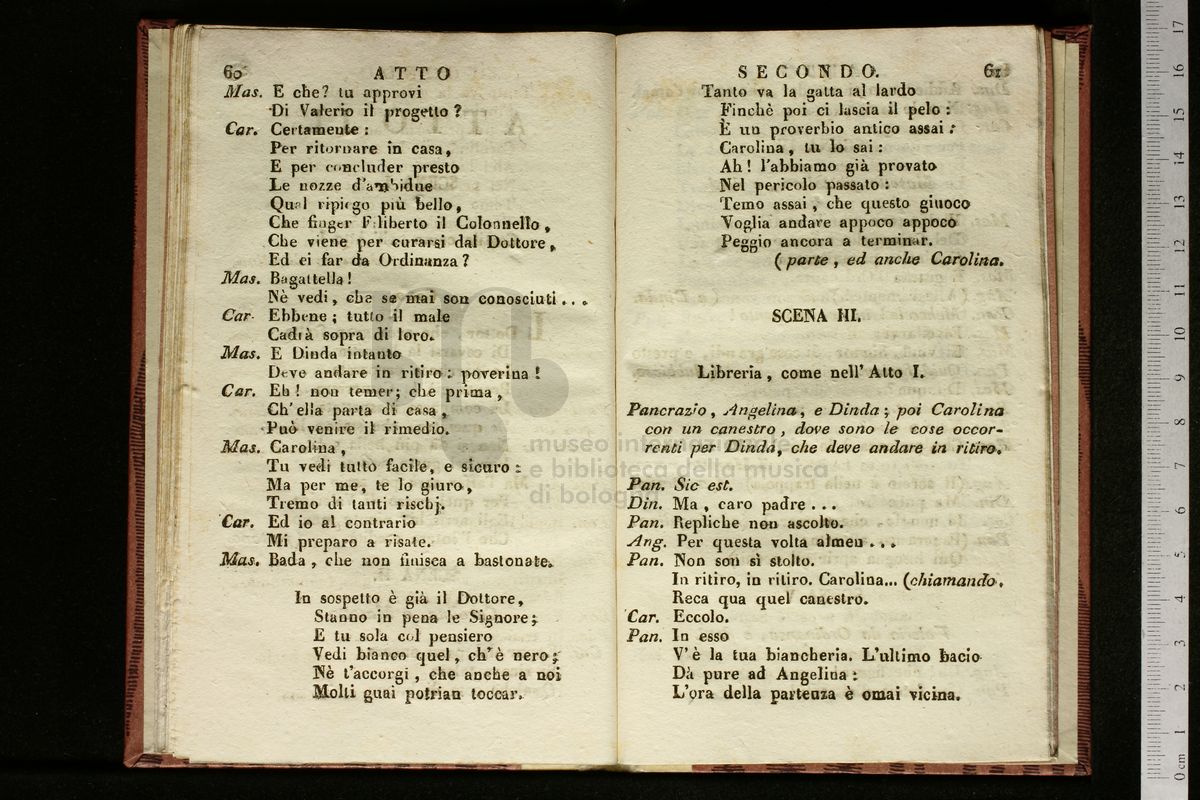 60 ATTO
Mas. E che? tu approvi
Di Valerio il progetto?
Car. Certamente:
Per ritornare in casa,
E per concluder presto
Le nozze d'ambidue
Qual ripiego più bello,
Che finger Filiberto il Colonnello,
Che viene per curarsi dal Dottore,
Ed ei far da Ordinanza?
Mas. Bagattella!
Nè vedi, che se mai son conosciuti...
Car. Ebbene; tutto il male
Cadrà sopra di loro.
Mas. E Dinda intanto
Deve andare in ritiro: poverina!
Car. Eh! non temer; che prima,
Ch'ella parta di casa,
Può venire il rimedio.
Mas. Carolina,
Tu vedi tutto facile, e sicuro:
Ma per me, te lo giuro,
Tremo di tanti rischj.
Car. Ed io al contrario
Mi preparo a risate.
Mas. Bada, che non finisca a bastonate.
In sospetto è già il Dottore,
Stanno in pena le Signore;
E tu sola col pensiero
Vedi bianco quel, ch'è nero;
Nè t'accorgi, che anche a noi
Molti guai potrian toccar.
SECONDO. 61
Tanto va la gatta al lardo
Finchè poi ci lascia il pelo:
È un proverbio antico assai:
Carolina, tu lo sai:
Ah! l'abbiamo già provato
Nel pericolo passato:
Temo assai, che questo giuoco
Voglia andare appoco appoco
Peggio ancora a terminar.
(parte, ed anche Carolina.
SCENA III.
Libreria, come nell' Atto I.
Pancrazio, Angelina, e Dinda; poi Carolina
con un canestro, dove sono le cose occor-
renti per Dinda, che deve andare in ritiro.
Pan. Sic est.
Din. Ma, caro padre...
Pan. Repliche non ascolto.
Ang. Per questa volta almen...
Pan. Non son sì stolto.
In ritiro, in ritiro. Carolina... (chiamando.
Reca qua quel canestro.
Car. Eccolo.
Pan. In esso
V'è la tua biancheria. L'ultimo bacio
Dà pure ad Angelina:
L'ora della partenza è omai vicina.
museo internazionale
e biblioteca della musica
di bologna
0 cm 1 2 3 4 5 6 7 8 9 10 11 12 13 14 15 16 17